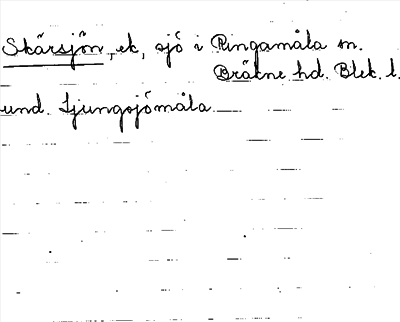 Skärsjön, ek, sjö i Ringamåla sn.
Bräkne hd. Blek. l.
und. Ljungsjömåla